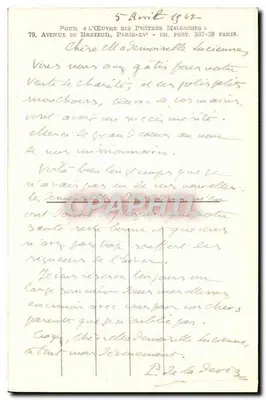 5 Avril 1942
POUR « L'ŒUVRE DES PRÊTRES MALGACHES »
79, AVENUE DE BRETEUIL, PARIS-XVe - CH. POST. 507-28 PARIS.
Chère Mademoiselle Lucienne,
Vous nous avez gâtés pour notre
Vente de Charité, et ces petits
mouchoirs, œuvre de vos mains,
vont avoir un succès mérité.
Merci de grand cœur au nom
de nos missionnaires.
Voilà bien longtemps que je
n'avais pas eu de vos nouvelles.
ont
santé reste bonne et que vous
n'avez pas trop souffert des
rigueurs de l'hiver.
CPAPHIL
Je vous réserve toujours un
large souvenir dans mes
pour vos chers
parents que je n'oublie pas.
Croyez, chère Mademoiselle Lucienne,
à tout mon dévouement.
P. de la Devèze